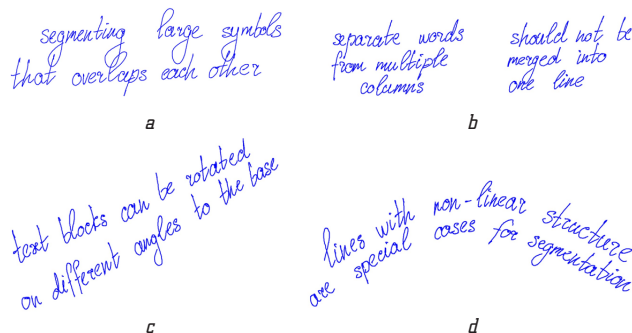 segmenting large symbols
that overlaps each other
a
separate words
from multiple
columns
should not be
merged into
one line
b
text blocks can be rotated
on different angles to the base
c
lines with non-linear structure
are special cases for segmentation
d